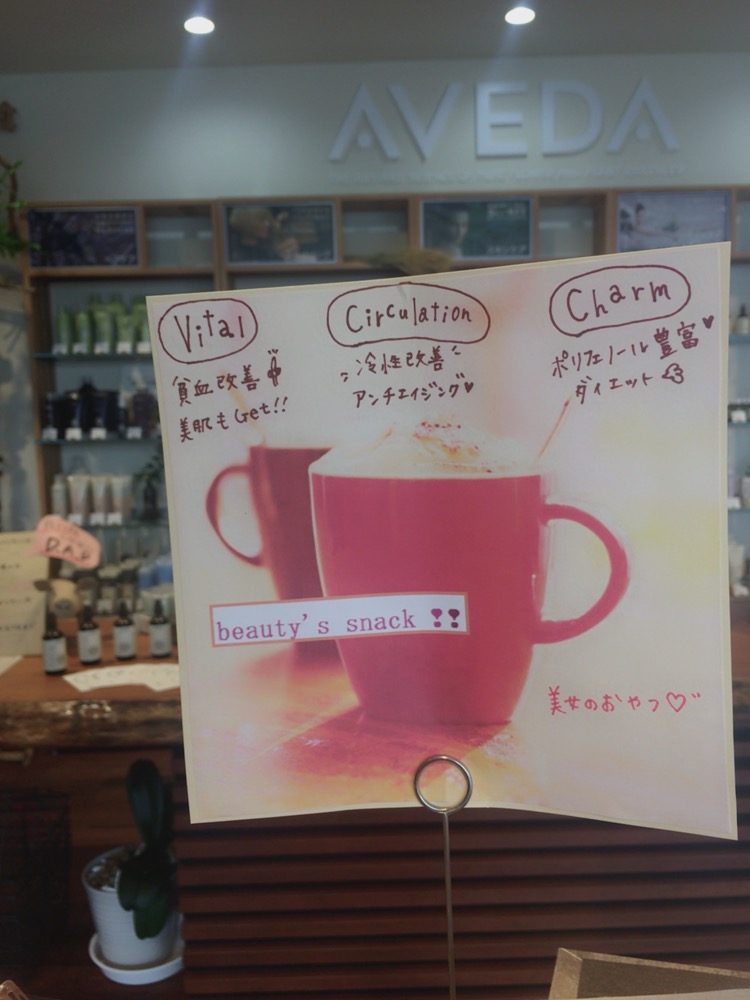 AVEDA
Vital
貧血改善
美肌もGet!!
Circulation
冷性改善
アンチエイジング♥
Charm
ポリフェノール豊富♥
ダイエット
beauty's snack !!
美女のおやつ♡